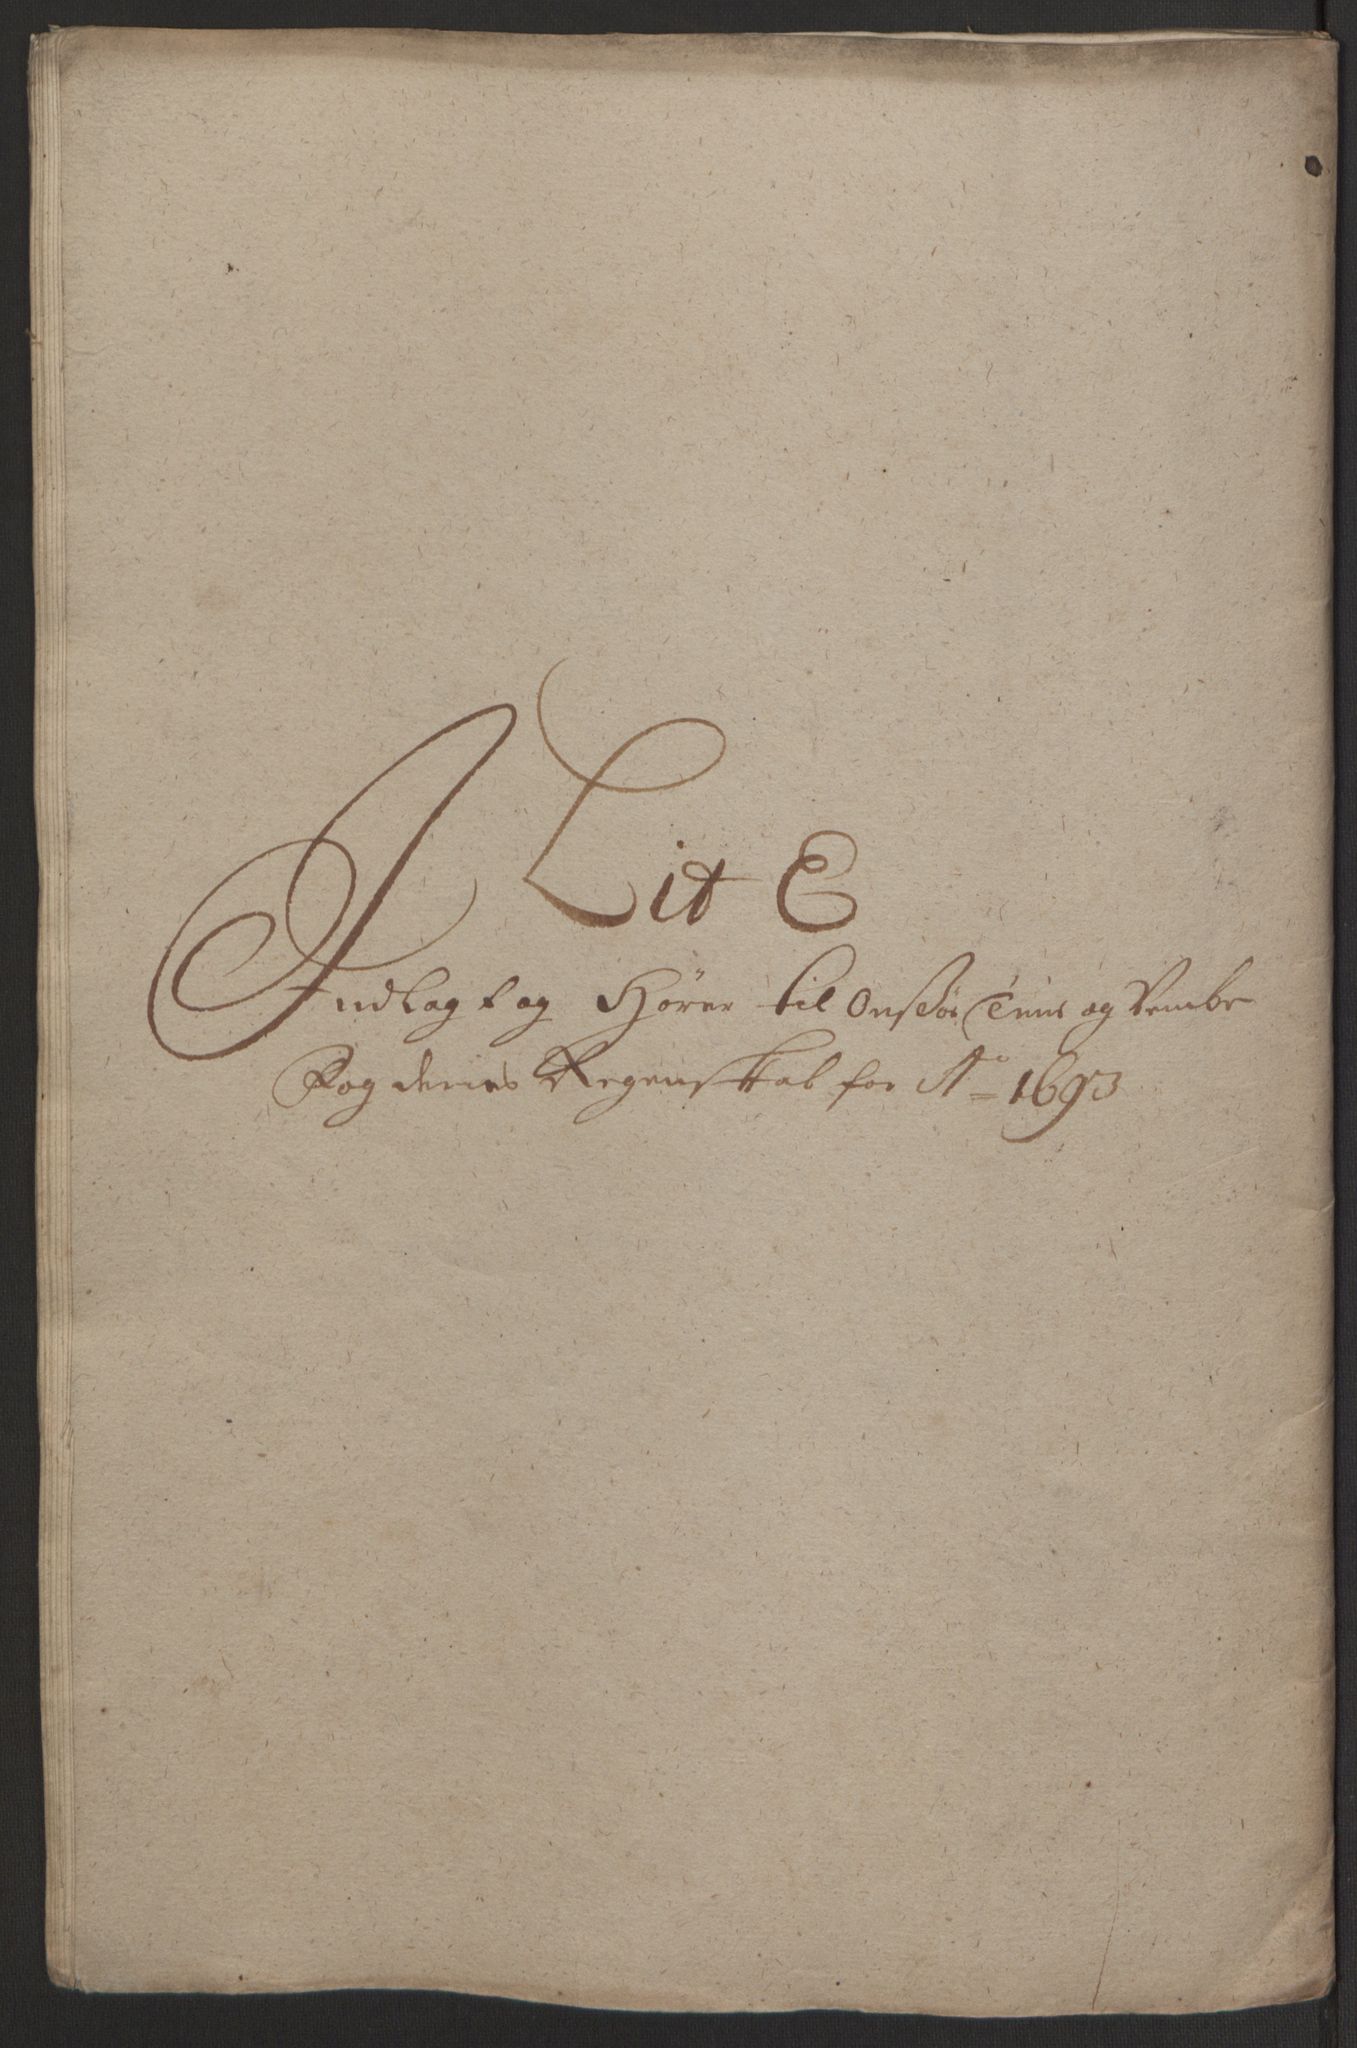 Lit E
Indlagt og Hører til Onsøe Tune og Vembe
Fogderies Regenskab for Ao 1693